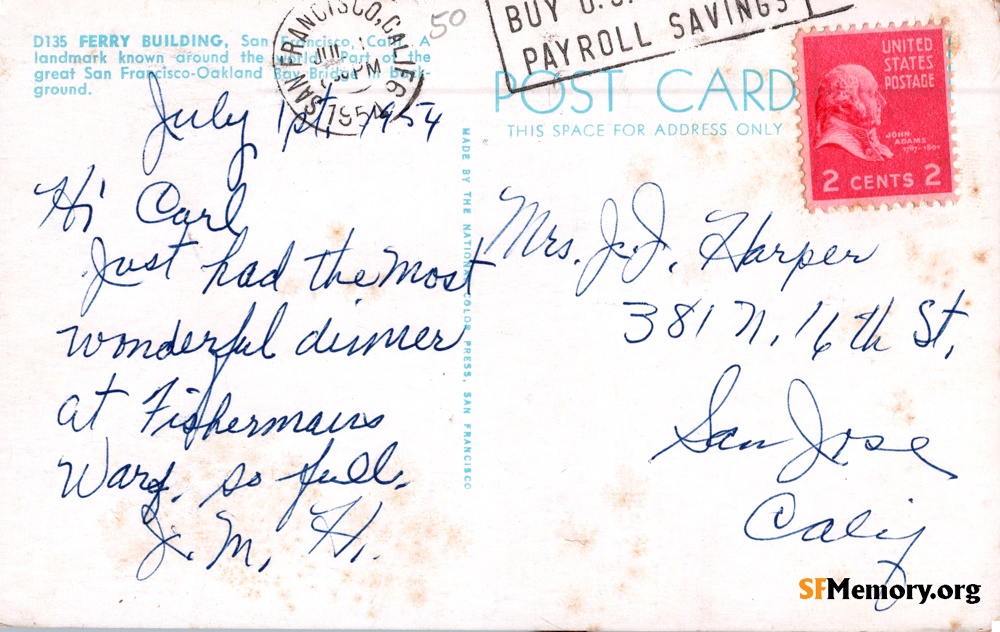 D135 FERRY BUILDING, San Francisco, Calif. A
landmark known around the world. Part of the
great San Francisco-Oakland Bay Bridge in back-
ground.
SAN FRANCISCO, CALIF.
JUL 1
PM
1954
50
BUY U.S.
PAYROLL SAVINGS
POST CARD
THIS SPACE FOR ADDRESS ONLY
UNITED
STATES
POSTAGE
JOHN
ADAMS
1797-1801
2 CENTS 2
July 1st, 1954
Hi Carl
Just had the most
wonderful dinner
at Fishermans
Warf. so full.
J. M. H.
MADE BY THE NATIONAL COLOR PRESS, SAN FRANCISCO
Mrs. J. J. Harper
381 N. 16th St.
San Jose
Calif
SFMemory.org